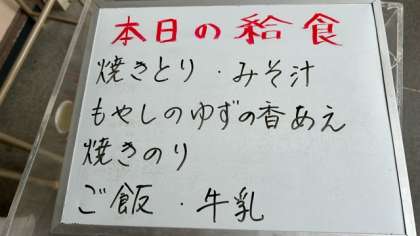 本日の給食
焼きとり・みそ汁
もやしのゆずの香あえ
焼きのり
ご飯・牛乳